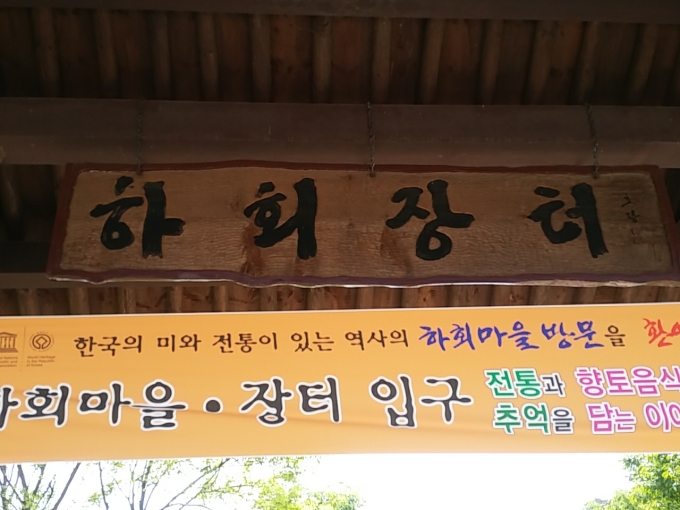 하회장터
한국의 미와 전통이 있는 역사의 하회마을 방문을
하회마을 · 장터 입구
전통과 향토음식
추억을 담는